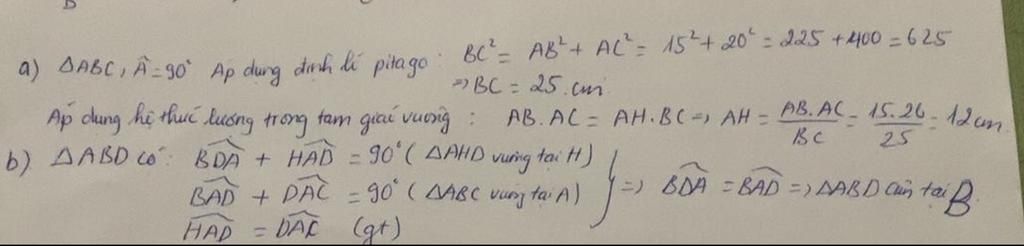 a) ΔABC, Â = 90° Áp dụng định lí pitago: BC² = AB² + AC² = 15² + 20² = 225 + 400 = 625
=> BC = 25 cm.
Áp dụng hệ thức lượng trong tam giác vuông: AB.AC = AH.BC => AH = AB.AC/BC = 15.20/25 = 12cm
b) ΔABD có: \widehat{BDA} + \widehat{HAD} = 90° (ΔAHD vuông tại H)
\widehat{BAD} + \widehat{DAC} = 90° (ΔABC vuông tại A) } => \widehat{BDA} = \widehat{BAD} => ΔABD cân tại B
\widehat{HAD} = \widehat{DAC} (gt)